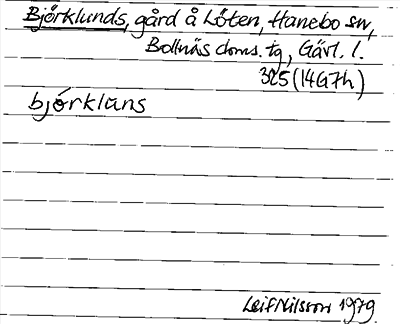 Björklunds, gård å Löten, Hanebo sn,
Bollnäs doms. tg, Gävl. l.
325 (14G7h)
björkluns
Leif Nilsson 1979